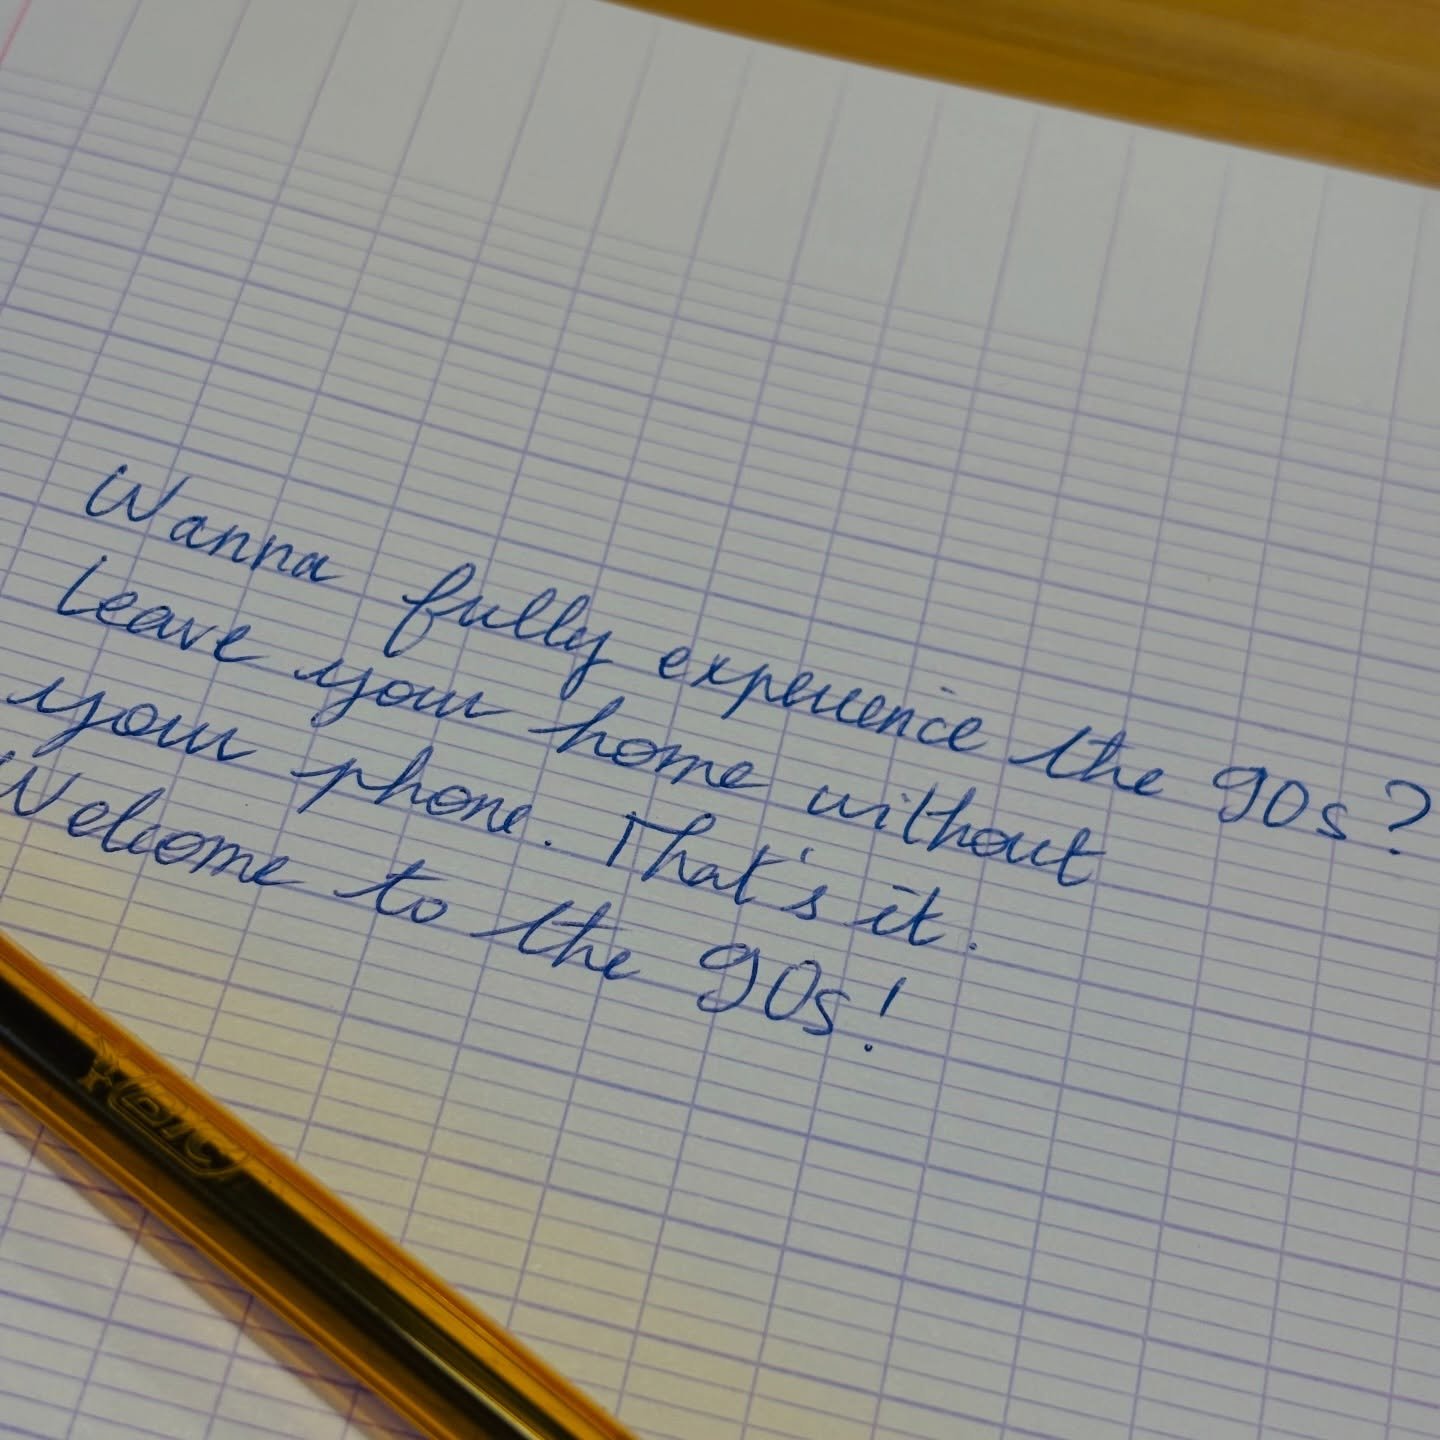 Wanna fully experience the 90s?
Leave your home without
your phone. That's it.
Welcome to the 90s!
BIC